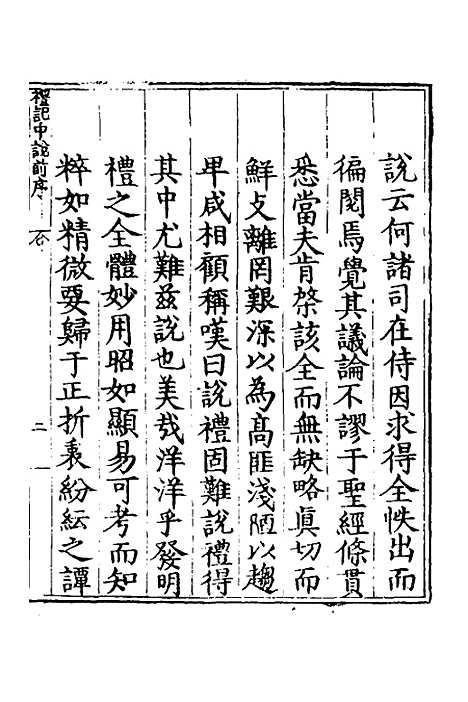 說云何諸司在侍因求得全帙出而
徧閱焉覺其議論不謬于聖經條貫
悉當夫肯綮該全而無缺略真切而
鮮支離罔艱深以為高匪淺陋以趨
卑咸相顧稱嘆曰說禮固難說禮得
其中尤難茲說也美哉洋洋乎發明
禮之全體妙用昭如顯易可考而知
粹如精微要歸于正折衷紛紜之譚
禮記中說前序
二